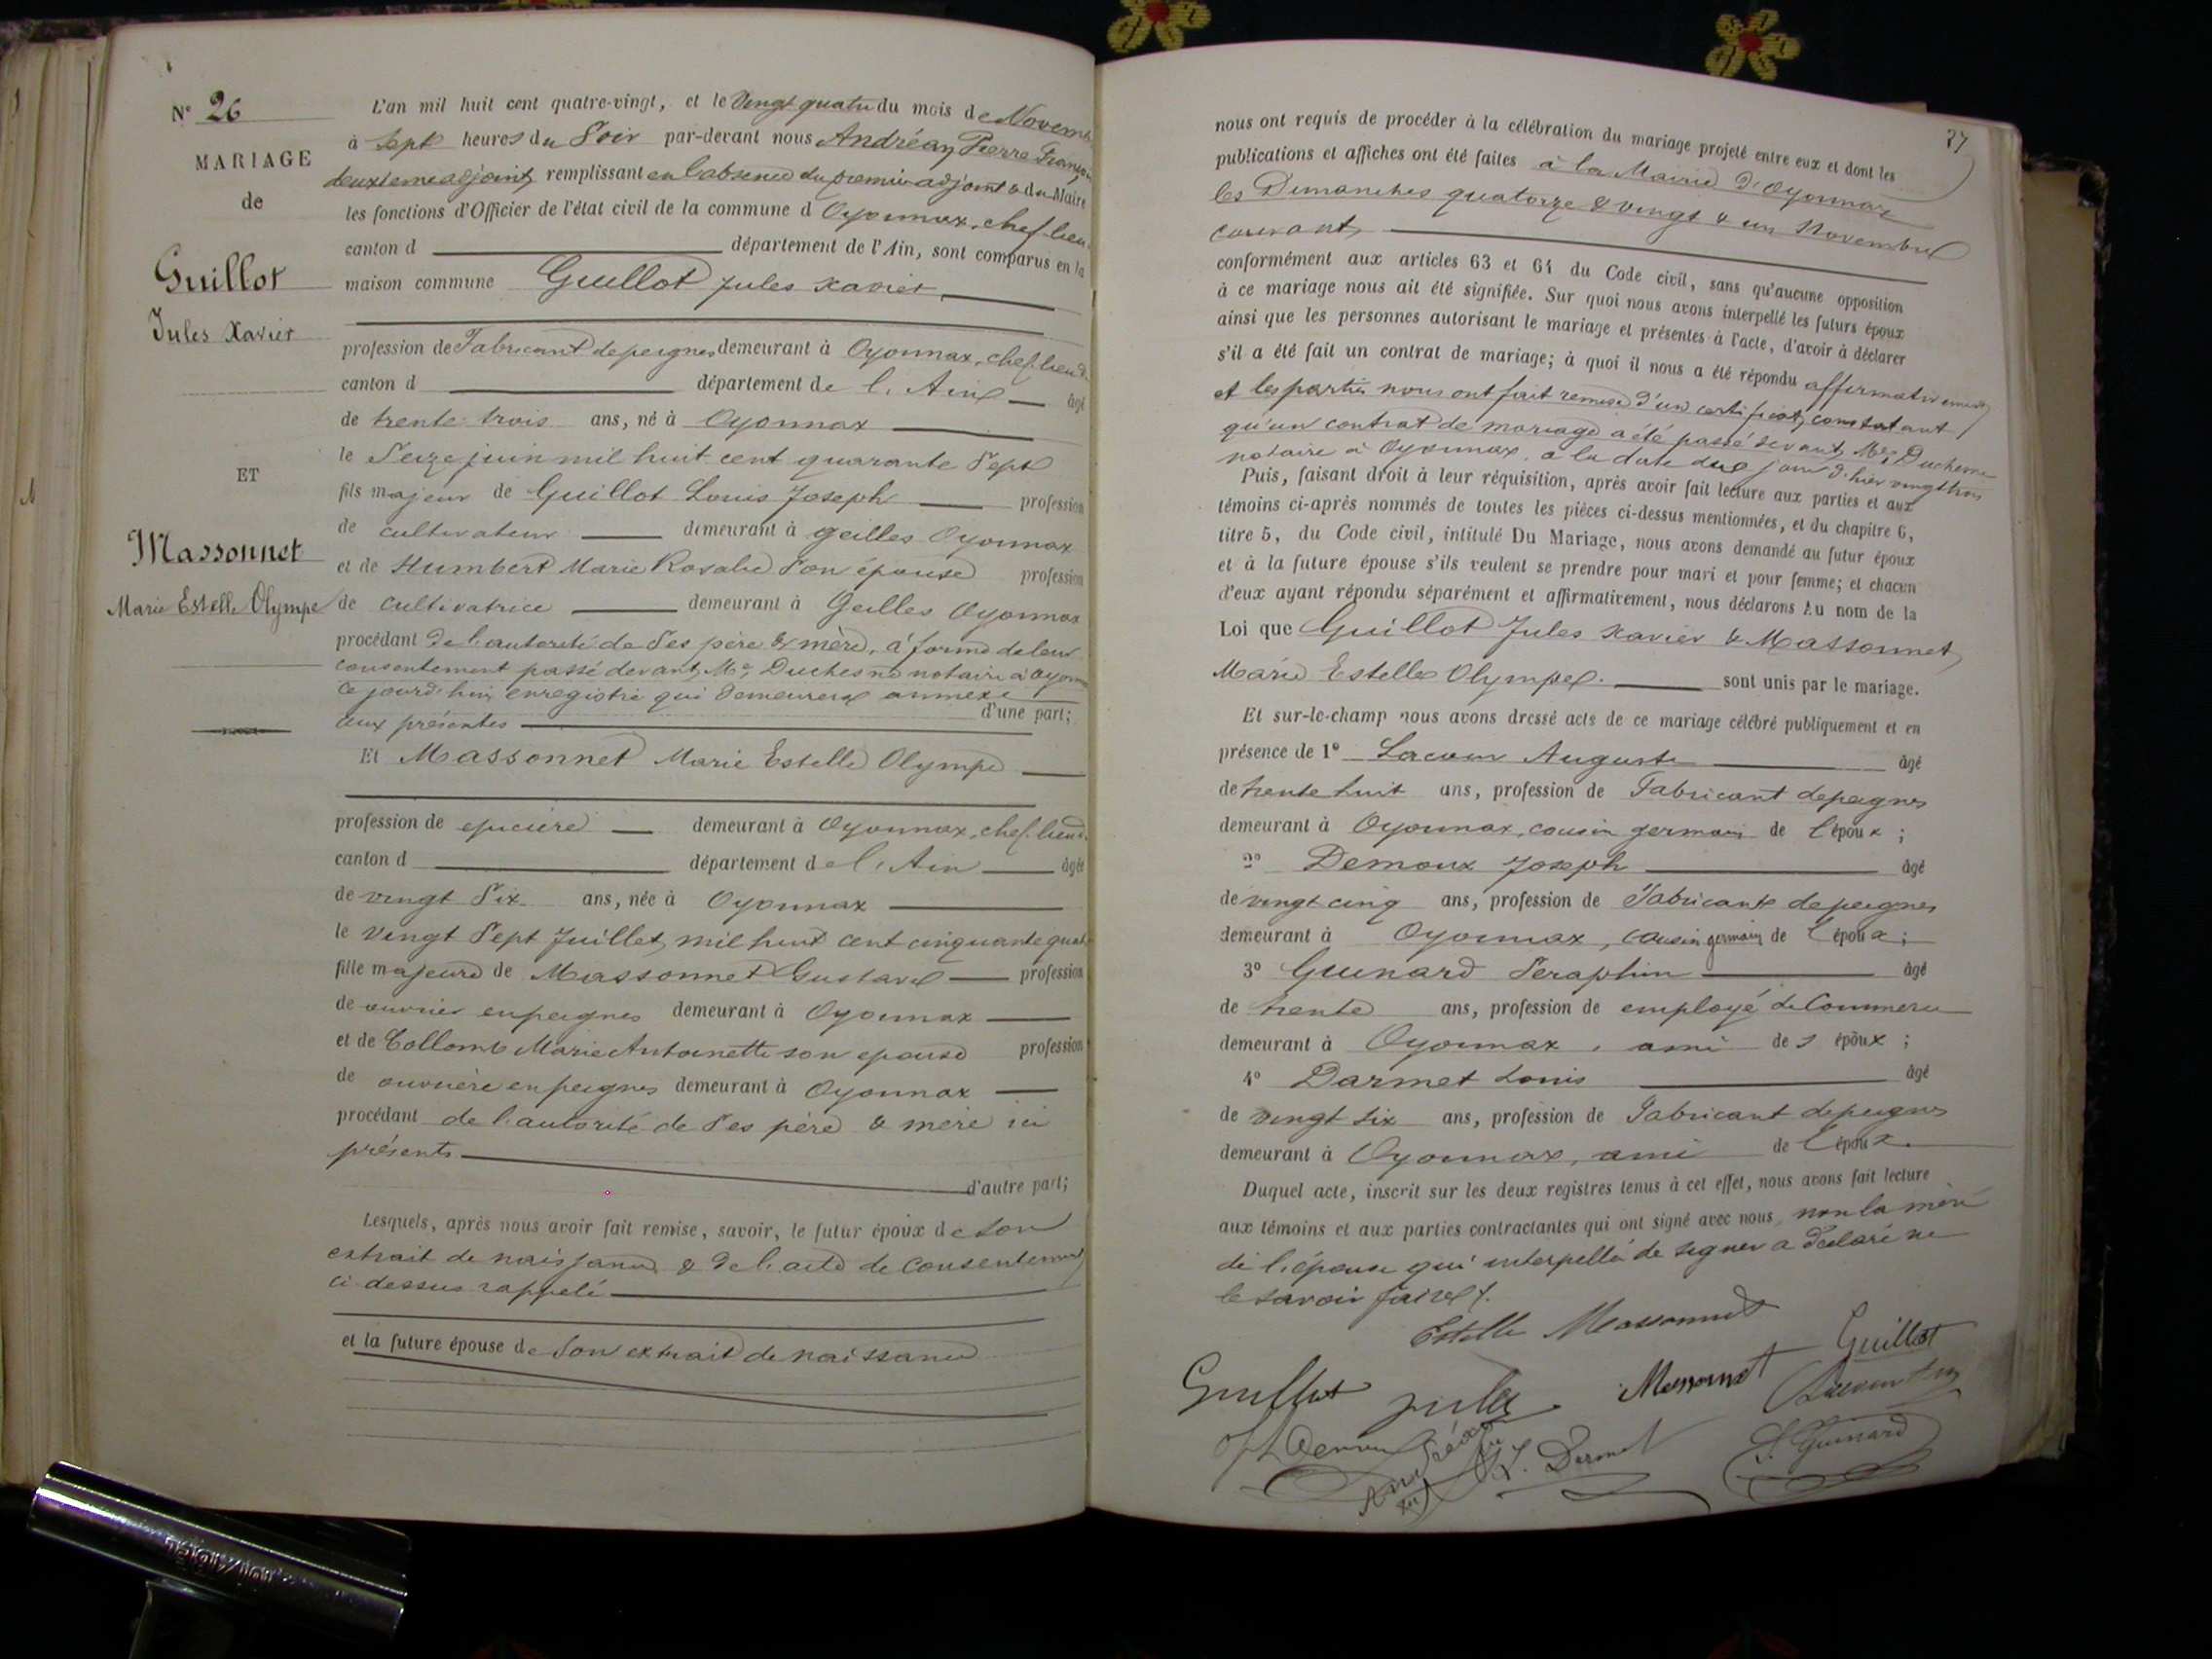 N° 26
MARIAGE
de
Guillot
Jules Xavier
ET
Massonnet
Marie Estelle Olympe
L'an mil huit cent quatre-vingt, et le Vingt quatre du mois de Novemb
à Sept heures du Soir par-devant nous Andréan Pierre François
deuxième adjoint, remplissant en l'absence du premier adjoint & du Maire
les fonctions d'Officier de l'état civil de la commune d Oyonnax, chef-lieu
canton d département de l'Ain, sont comparus en la
maison commune Guillot Jules Xavier
profession de Fabricant de peignes demeurant à Oyonnax, chef-lieu d
canton d département de l'Ain âgé
de trente trois ans, né à Oyonnax
le Seize juin mil huit cent quarante Sept
fils majeur de Guillot Louis Joseph profession
de cultivateur demeurant à Geilles Oyonnax
et de Humbert Marie Rosalie Son épouse profession
de cultivatrice demeurant à Geilles Oyonnax
procédant de l'autorité de Ses père & mère, à forme de leur
consentement passé devant Me Duchesne notaire à Oyonn
ce jourd'hui enregistré qui demeurera annexé
aux présentes d'une part;
Et Massonnet Marie Estelle Olympe
profession de epicière demeurant à Oyonnax, chef-lieu d
canton d département de l'Ain âgée
de vingt Six ans, née à Oyonnax
le vingt Sept Juillet, mil huit cent cinquante quat
fille majeure de Massonnet Gustave profession
de ouvrier en peignes demeurant à Oyonnax
et de Collomb Marie Antoinette son epouse profession
de ouvrière en peignes demeurant à Oyonnax
procédant de l'autorité de Ses père & mère ici
présents
d'autre part;
Lesquels, après nous avoir fait remise, savoir, le futur époux de Son
extrait de naissance & de l'acte de consentement
ci dessus rappelé
et la future épouse de Son extrait de naissance
77
nous ont requis de procéder à la célébration du mariage projeté entre eux et dont les
publications et affiches ont été faites à la Mairie d'Oyonnax
les Dimanches quatorze & vingt & un Novembre
courant,
conformément aux articles 63 et 64 du Code civil, sans qu'aucune opposition
à ce mariage nous ait été signifiée. Sur quoi nous avons interpellé les futurs époux
ainsi que les personnes autorisant le mariage et présentes à l'acte, d'avoir à déclarer
s'il a été fait un contrat de mariage; à quoi il nous a été répondu affirmativement
et les parties nous ont fait remise d'un certificat, constatant
qu'un contrat de mariage a été passé devant Me Duchesne
notaire à Oyonnax à la date du jour d'hier vingt trois
Puis, faisant droit à leur réquisition, après avoir fait lecture aux parties et aux
témoins ci-après nommés de toutes les pièces ci-dessus mentionnées, et du chapitre 6,
titre 5, du Code civil, intitulé Du Mariage, nous avons demandé au futur époux
et à la future épouse s'ils veulent se prendre pour mari et pour femme; et chacun
d'eux ayant répondu séparément et affirmativement, nous déclarons Au nom de la
Loi que Guillot Jules Xavier & Massonnet
Marie Estelle Olympe sont unis par le mariage.
Et sur-le-champ nous avons dressé acte de ce mariage célébré publiquement et en
présence de 1° Lacour Auguste âgé
de trente huit ans, profession de Fabricant de peignes
demeurant à Oyonnax, cousin germain de l'époux;
2° Demoux Joseph âgé
de vingt cinq ans, profession de Fabricant de peignes
demeurant à Oyonnax, cousin germain de l'époux;
3° Guinard Seraphin âgé
de trente ans, profession de employé de Commerce
demeurant à Oyonnax, ami des époux;
4° Darmet Louis âgé
de vingt six ans, profession de Fabricant de peignes
demeurant à Oyonnax, ami de l'époux.
Duquel acte, inscrit sur les deux registres tenus à cet effet, nous avons fait lecture
aux témoins et aux parties contractantes qui ont signé avec nous, non la mère
de l'épouse qui interpellée de signer a déclaré ne
le savoir faire.
Estelle Massonnet
Guillot Jules Massonnet Guillot
L. Darmet S. Guinard